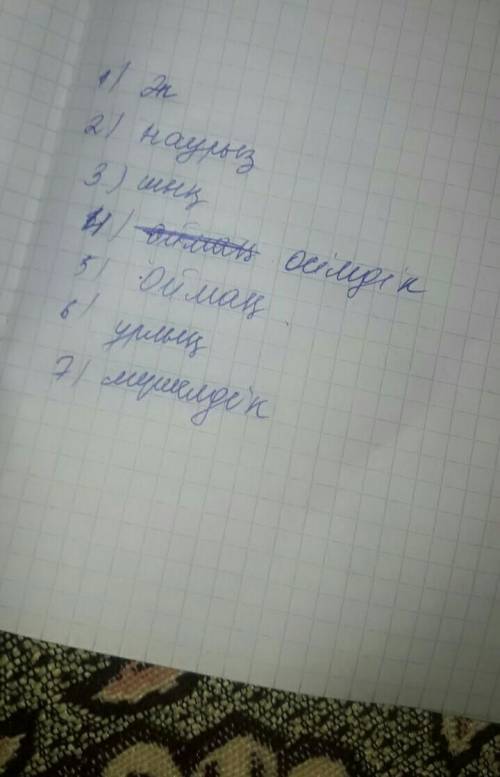 1) Әк
2) наурыз
3) шың
4) ~~оймаң~~ өсімдік
5) оймаң
6) урлың
7) мүшелдік